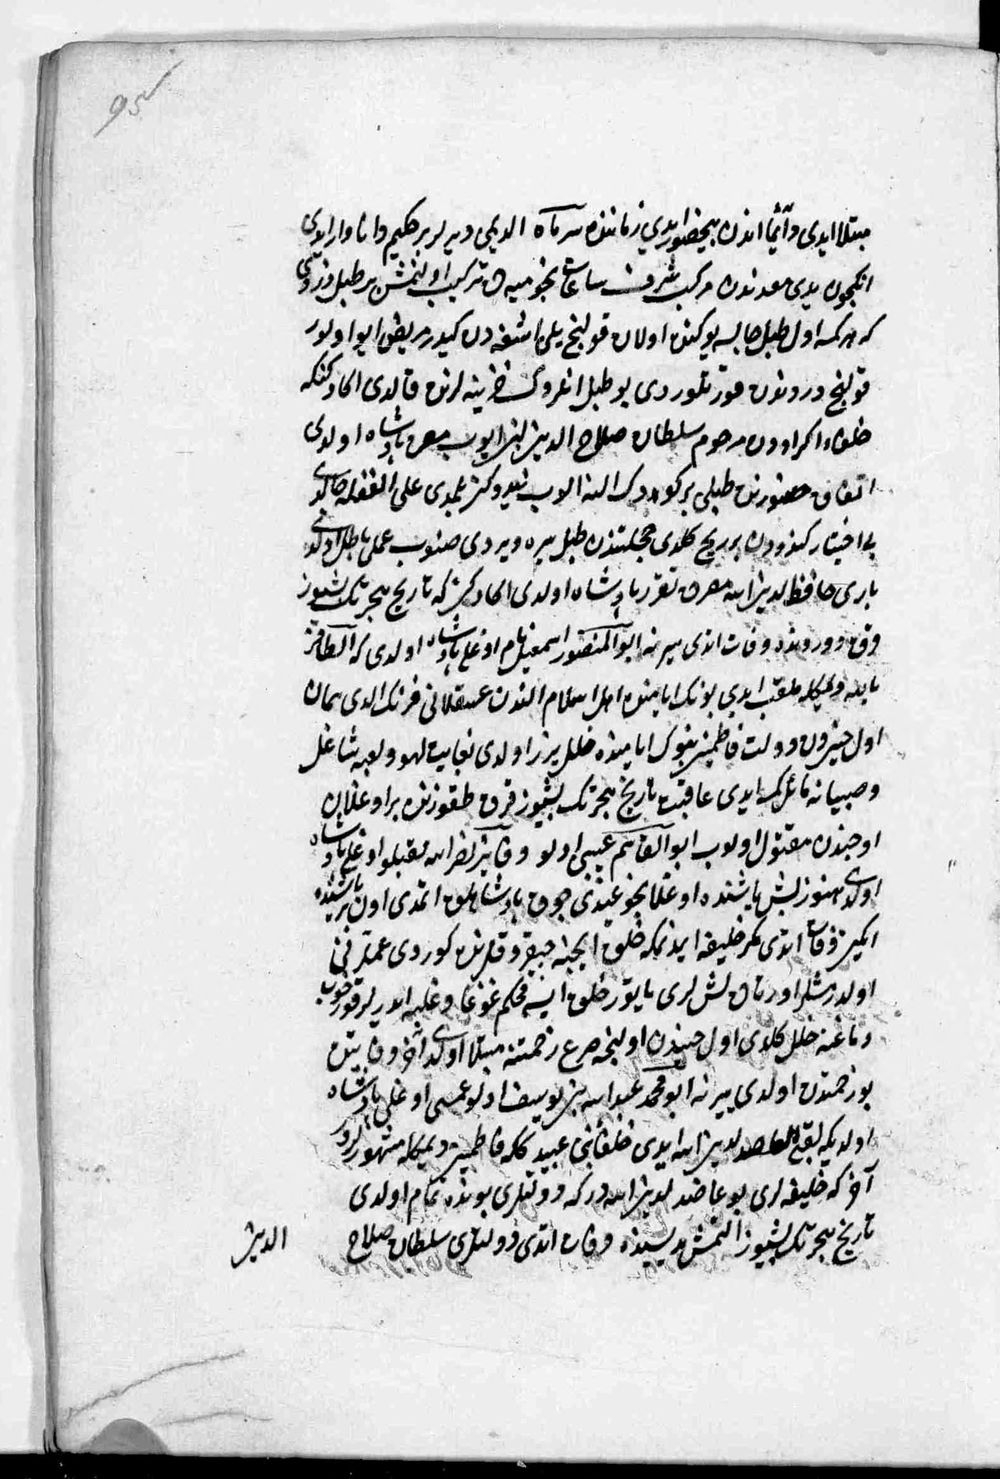 مبتلا ایدی دائما اندن بیحضور ایدی زماننده سرماه الدیلمی دیرلر بر حکیم دانا وار ایدی
انکچون یدی معدندن مرکب شرف ساعات نجومیه ده ترکیب اولنمش بر طبل دوزتدی
که هر کمسه اول طبل چالسه یوکنده اولان قولنج یلی اشغه دن کیدر مریض ایو اولور
قولنج دردندن قورتلوردی بو طبل انلروك خزینه لرنده قالدی اکا دکنکه
خلفاء اکرادون مرحوم سلطان صلاح الدین بن ایوب مصره پادشاه اولدی
اتفاق حضورنده طبلی بر کورد الینه الوب نیدوکن بلمدی علی الغفله چالدی
بی اختیار کندودن بر ریح کلدی خجلتندن طبل یره ویردی صنوب عمل باطل اولدی
باری حافظ لدین الله مصرده تقرر پادشاه اولدی اکا دکین که تاریخ هجرتك بشیوز
قرق دوردنده وفات اتدی یرینه ابو المنصور اسمعیل نام اوغلی پادشاه اولدی که الظافر
بالله دیمکله ملقب ایدی بونك ایامنده اهل اسلام الندن عسقلانی فرنك الدی همان
اول حیندن دولت فاطمیین بنوك ایامنده خلل پزیر اولدی بغایت لهو و لعبه شاغل
و صبیانه مائل ایدی عاقبت تاریخ هجرتك بشیوز قرق طقوزنده بر اوغلان
اوجندن مقتول اولوب ابو القاسم عیسی اولو و فائز بنصر الله لقبلو اوغلی پادشاه
اولدی هنوز بش یاشنده اوغلانجوغیدی چوق پادشاهلق اتمدی اون بر یاشنده
ایکن وفات اتدی مکر خلیفه ایدنمکه خلق ایچنه چیقردقلرنده کوردی عملرینی
اولدرمشلر اورتاده لش لری یاتور خلق ایسه محکم غوغا و غلبه ایدرلر قورقوب
دماغنه خلل کلدی اول حیندن اولنجه صرع زحمتنه مبتلا اولدی آخر وفاتی ده
بو زحمتدن اولدی یرینه ابو محمد عبد الله بن یوسف اولو عمسی اوغلی پادشاه
اولدیکه لقبی العاضد لدین الله ایدی خلفاء بنی عبید که فاطمیین دیمکله مشهورلردر
آخرکه خلیفه لری بو عاضد لدین الله درکه دولتلری بونده تمام اولدی
تاریخ هجرتك بشیوز التمش یدیسنده وفات اتدی دولتلری سلطان صلاح
الدین